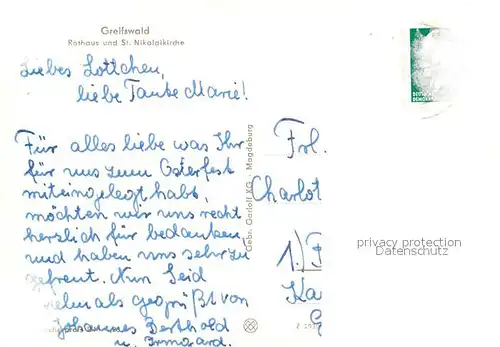 Greifswald
Rathaus und St. Nikolaikirche
Liebes Lottchen,
liebe Tante Marie!
Für alles liebe was Ihr
für uns zum Osterfest
miteingelegt habt,
möchten wir uns recht
herzlich für bedanken
und haben uns sehr zu
gefreut. Nun Seid
vielmals gegrüßt von
Johannes Berthold
u. Irmgard.
Gebr. Garloff KG · Magdeburg
Frl.
Charlot
1.)
Ka
privacy protection
Datenschutz